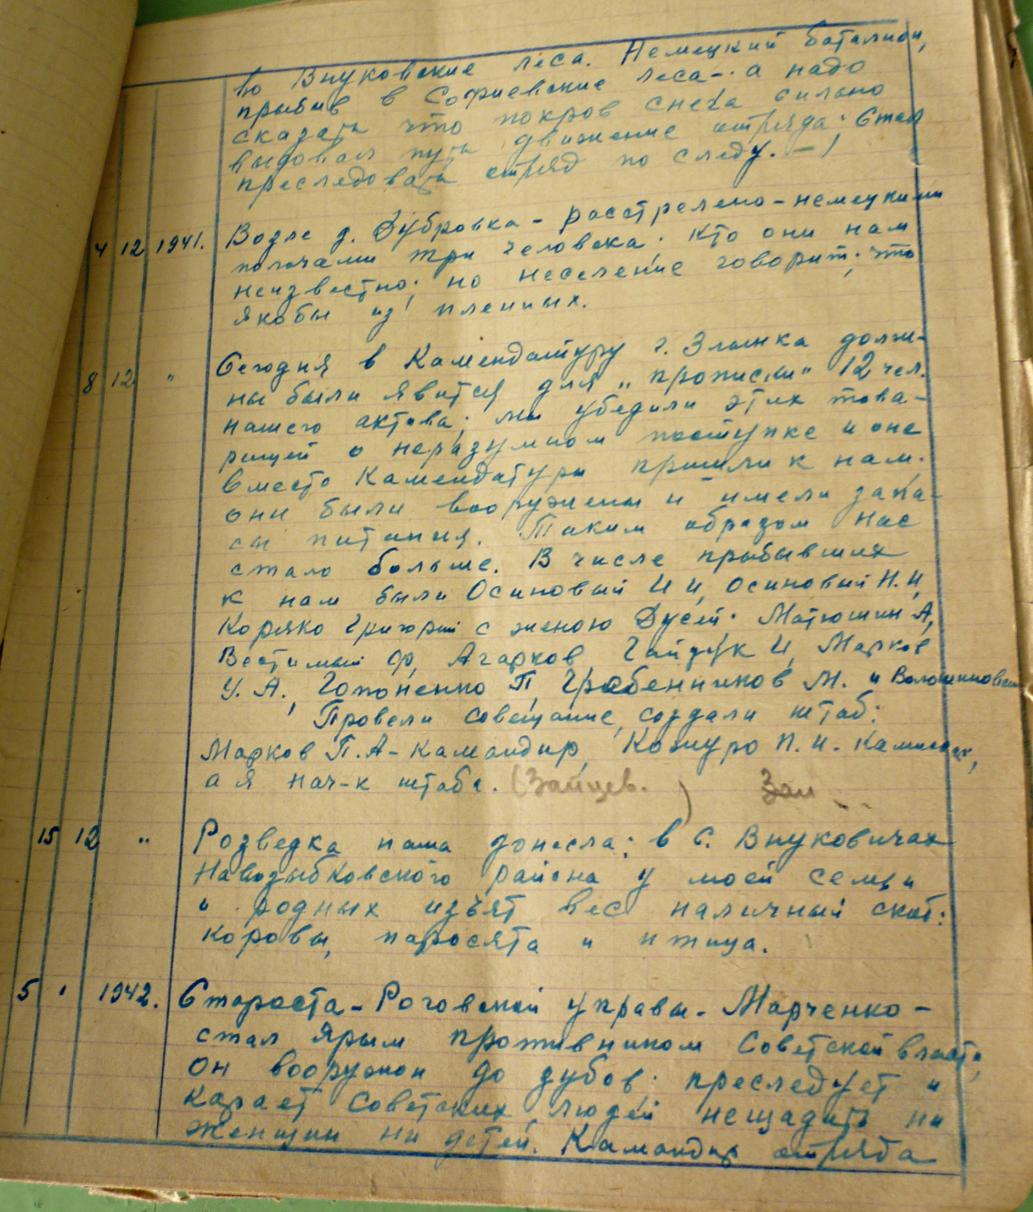 во Внуковские леса. Немецкий баталион,
прибыв в Софиевские леса - а надо
сказать что покров снега сильно
выдовал путь движение отряда; Стал
преследовать отряд по следу. -
4 12 1941. Возле д. Дубровка - расстрелено - немецкими
полочами три человека. Кто они нам
неизвестно; но население говорит; что
якобы из пленных.
8 12 " Сегодня в Камендатуру г. Злынка долж-
ны были явится для "прописки" 12 чел.
нашего актива; мы убедили этих това-
рищей о неразумном поступке и они
вместо Камендатуры пришли к нам.
они были вооружены и имели запа-
сы питания. Таким образом нас
стало больше. В числе прибывших
к нам были Осиновый И И, Осиновый Н. И,
Коряко Григорий с женою Дусей. Матюшин А,
Вестимый Ф, Агарков, Гайдук И, Марков
У. А, Гопоненко П, Гребенников М. и
Провели совещание, создали штаб:
Марков П. А - Камандир, Кожуро П. И.
а я нач-к штаба. (Зайцев. ) Зай
15 12 " Розведка наша донесла; в с. Внуковичах
Навозыбковского района у моей семьи
и родных изъят вес наличный скот:
коровы, поросята и птица.
5 1 1942. Староста - Роговской управы - Марченко -
стал ярым противником Советской власти,
он вооружон до зубов: преследует и
карает Советских людей нещадить ни
женщин ни детей. Камандир отряда